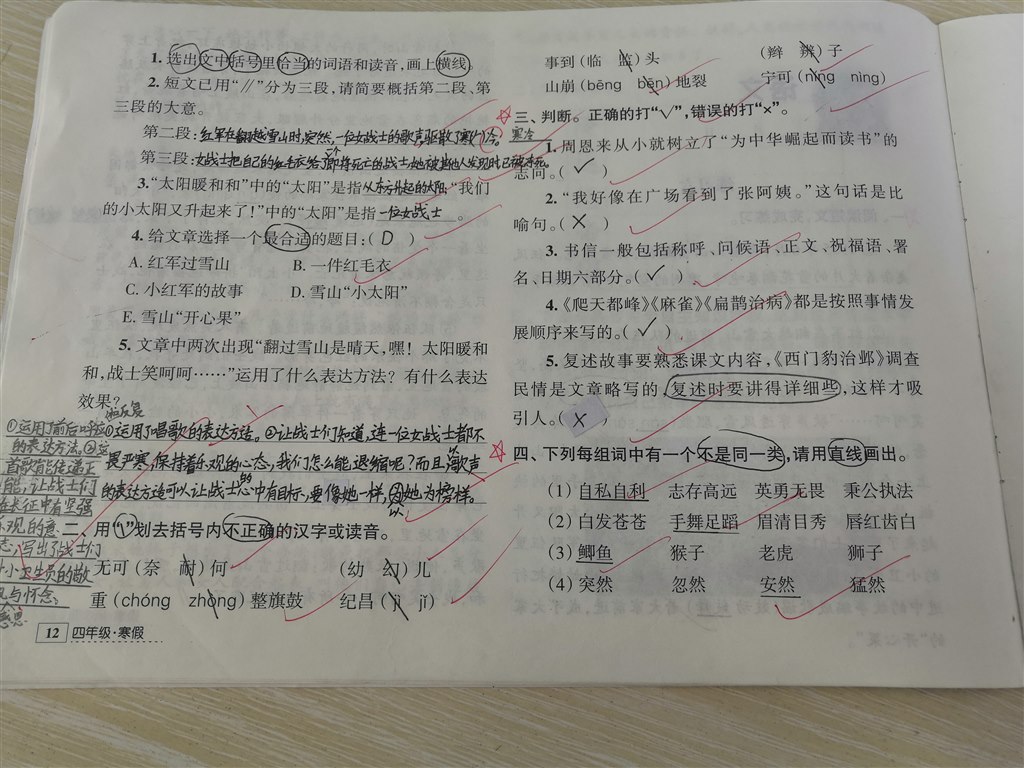 1. 选出文中括号里恰当的词语和读音,画上横线。
2. 短文已用“∥”分为三段,请简要概括第二段、第
三段的大意。
第二段:红军在翻越雪山时,突然,一位女战士的歌声驱散了寒冷。寒冷
第三段:女战士把自己的红毛衣给了一个即将死亡的战士,她被其他人发现时已被冻死。
3.“太阳暖和和”中的“太阳”是指从东方升起的太阳,“我们
的小太阳又升起来了!”中的“太阳”是指一位女战士。
4. 给文章选择一个最合适的题目:( D )
A. 红军过雪山 B. 一件红毛衣
C. 小红军的故事 D. 雪山“小太阳”
E. 雪山“开心果”
5. 文章中两次出现“翻过雪山是晴天,嘿!太阳暖和
和,战士笑呵呵……”运用了什么表达方法?有什么表达
效果?
①运用了唱歌的表达方法。②让战士们知道,连一位女战士都不
畏严寒,保持着乐观的心态,我们怎么能退缩呢?而且歌声
的表达方法可以让战士心中有目标,要像她一样,以她为榜样。
①运用了前后呼应
的表达方法。②这
首歌能传递正
能,让战士们
在长征中有坚强
乐观的意
志,写出了战士们
对小卫生员的敬
与怀念。
二、用“\”划去括号内不正确的汉字或读音。
无可(奈 耐)何 (幼 幻)儿
重(chóng zhòng)整旗鼓 纪昌(jì jǐ)
12 四年级·寒假
事到(临 监)头 (辫 辨)子
山崩(bēng bēn)地裂 宁可(níng nìng)
三、判断。正确的打“√”,错误的打“×”。
1. 周恩来从小就树立了“为中华崛起而读书”的
志向。( ✓ )
2.“我好像在广场看到了张阿姨。”这句话是比
喻句。( X )
3. 书信一般包括称呼、问候语、正文、祝福语、署
名、日期六部分。( ✓ )
4.《爬天都峰》《麻雀》《扁鹊治病》都是按照事情发
展顺序来写的。( ✓ )
5. 复述故事要熟悉课文内容,《西门豹治邺》调查
民情是文章略写的,复述时要讲得详细些,这样才吸
引人。( X )
四、下列每组词中有一个不是同一类,请用直线画出。
(1) 自私自利 志存高远 英勇无畏 秉公执法
(2) 白发苍苍 手舞足蹈 眉清目秀 唇红齿白
(3) 鲫鱼 猴子 老虎 狮子
(4) 突然 忽然 安然 猛然